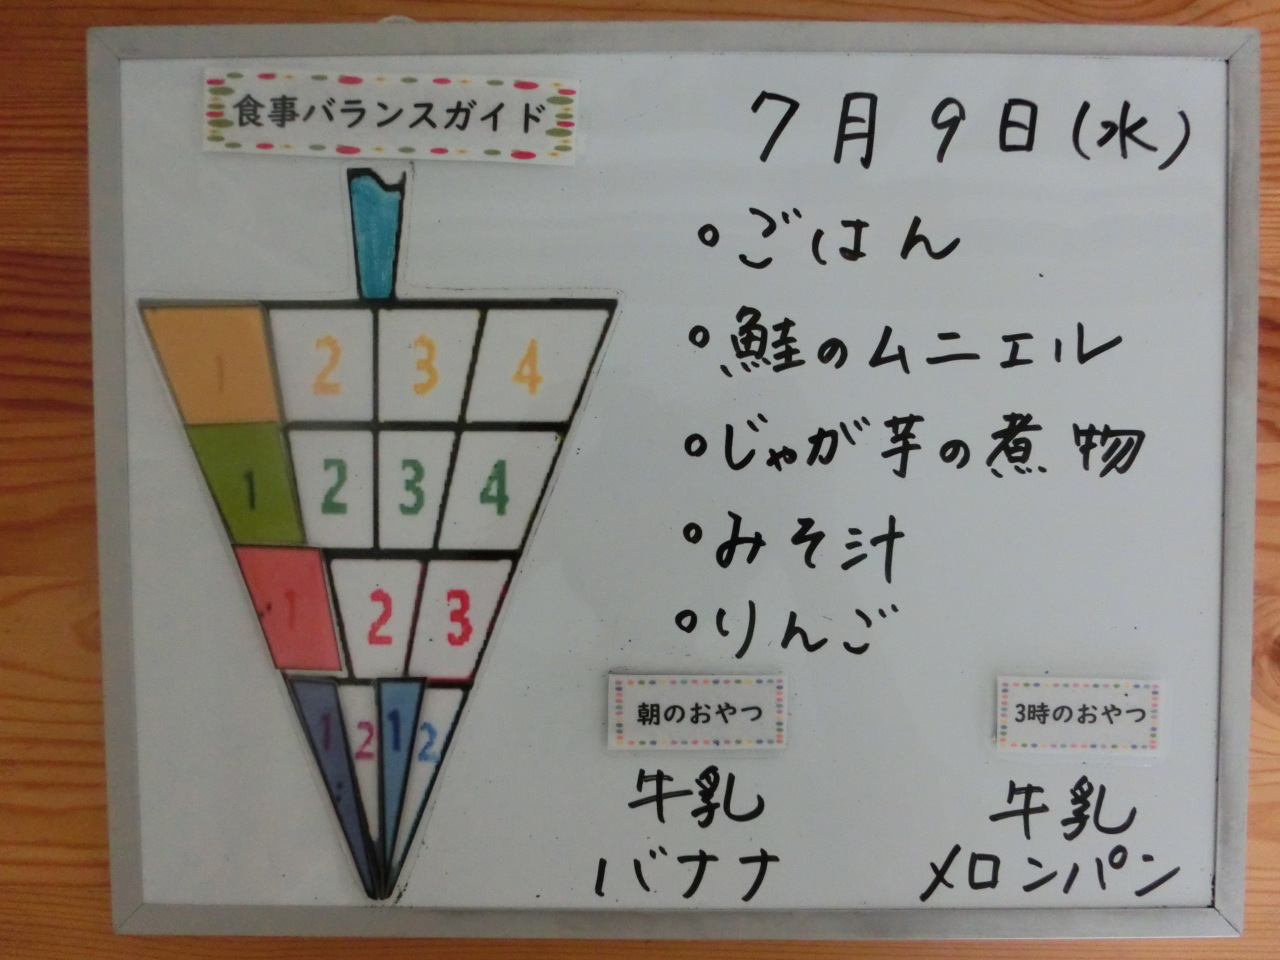 食事バランスガイド
7月9日(水)
・ごはん
・鮭のムニエル
・じゃが芋の煮物
・みそ汁
・りんご
1 2 3 4
1 2 3 4
1 2 3
1 2 1 2
朝のおやつ
牛乳
バナナ
3時のおやつ
牛乳
メロンパン